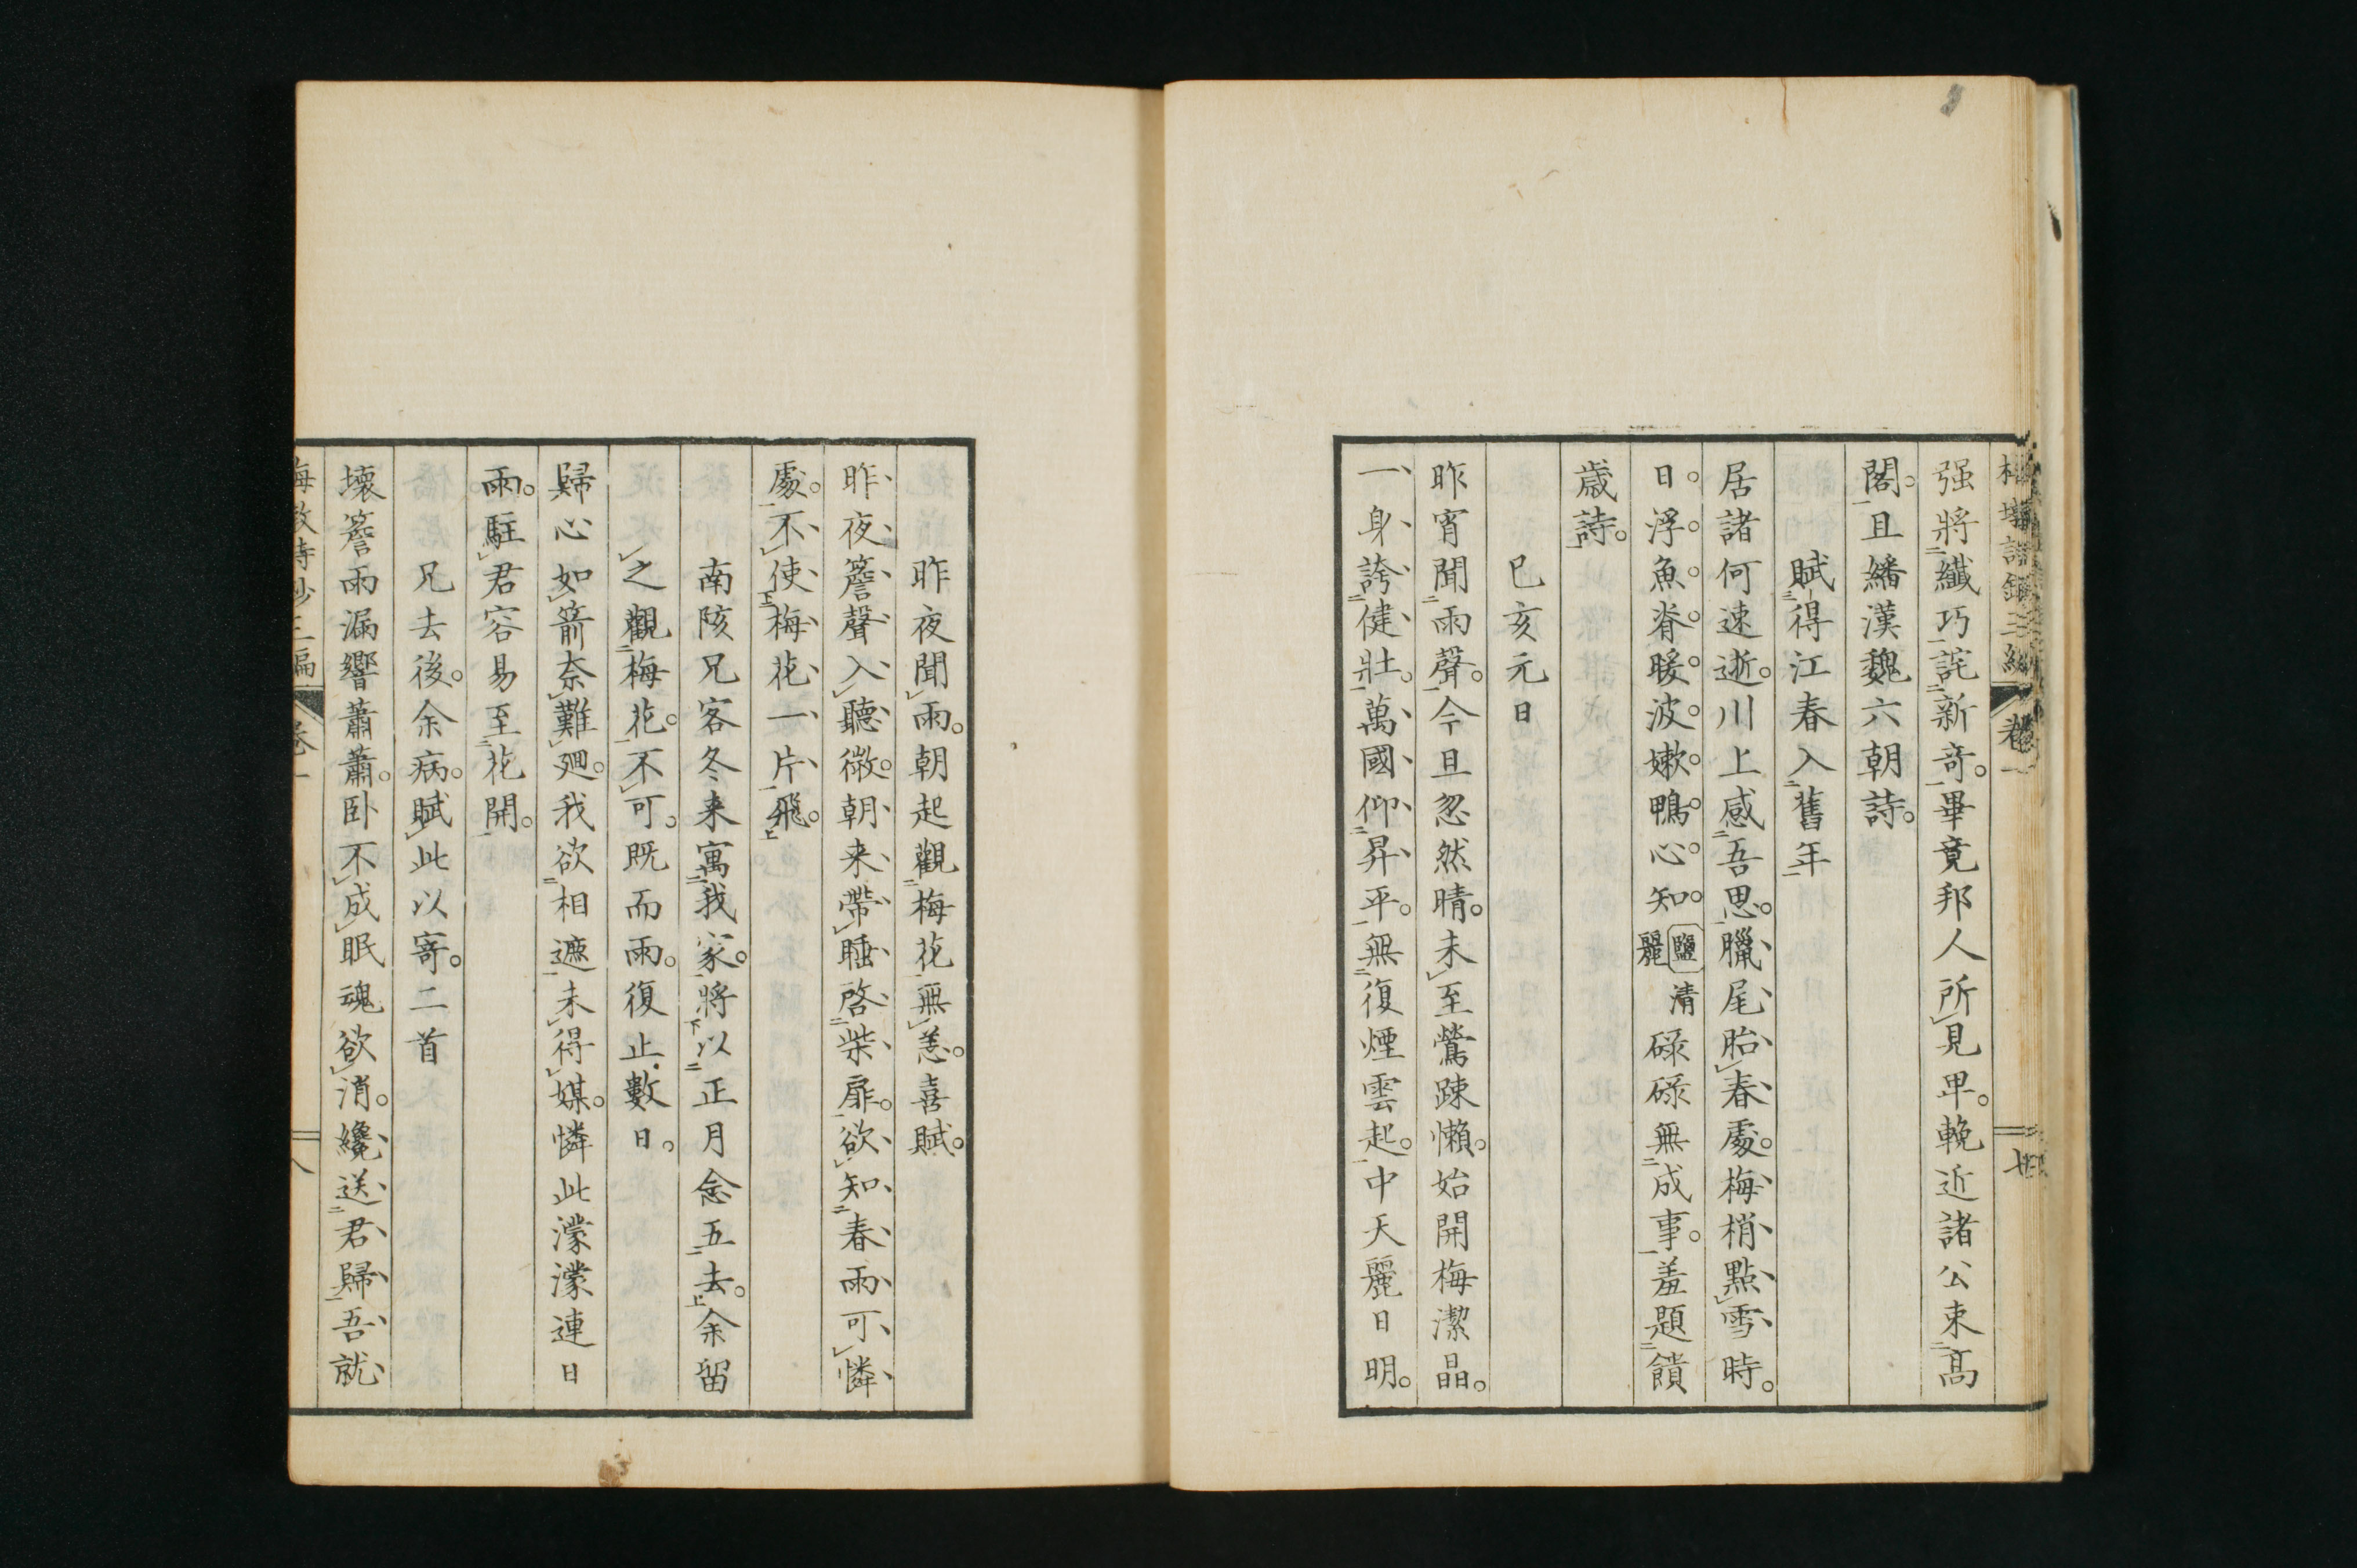 强將纖巧詫新奇。畢竟邦人所見卑。輓近諸公束高
閣。且繙漢魏六朝詩。
賦得江春入舊年
居諸何速逝。川上感吾思。臘尾胎春處。梅梢點雪時。
日浮魚脊暖。波嫰鴨心知。鹽麗清碌碌無成事。羞題饋
歲詩。
巳亥元日
昨宵聞雨聲。今旦忽然晴。未至鶯踈懶。始開梅潔晶。
一身誇健壯。萬國仰昇平。無復煙雲起。中天麗日明。
昨夜聞雨。朝起觀梅花無恙。喜賦。
昨夜簷聲入聽微。朝来帶睡啓柴扉。欲知春雨可憐
處。不使梅花一片飛。
南陔兄客冬来寓我家。將以正月念五去。余留
之觀梅花。不可。既而雨。復止數日。
歸心如箭奈難廻。我欲相遮未得媒。憐此濛濛連日
雨。駐君容易至花開。
兄去後。余病。賦此以寄。二首
壞簷雨漏響蕭蕭。卧不成眠魂欲消。纔送君歸吾就
詩鈔三編 卷一 八